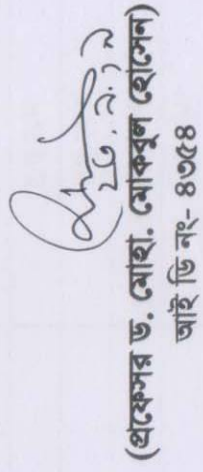 ২৩.২.১৯
(প্রফেসর ড. মোহা. মোকবুল হোসেন)
আই ডি নং- ৪৩৫৪